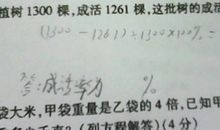 植树 1300 棵,成活 1261 棵,这批树的成活
(1300 - 1261) ÷ 1300 × 100% =
答:成活率为 %
袋大米,甲袋重量是乙袋的 4 倍,已知甲
(列方程解答)(4 分)